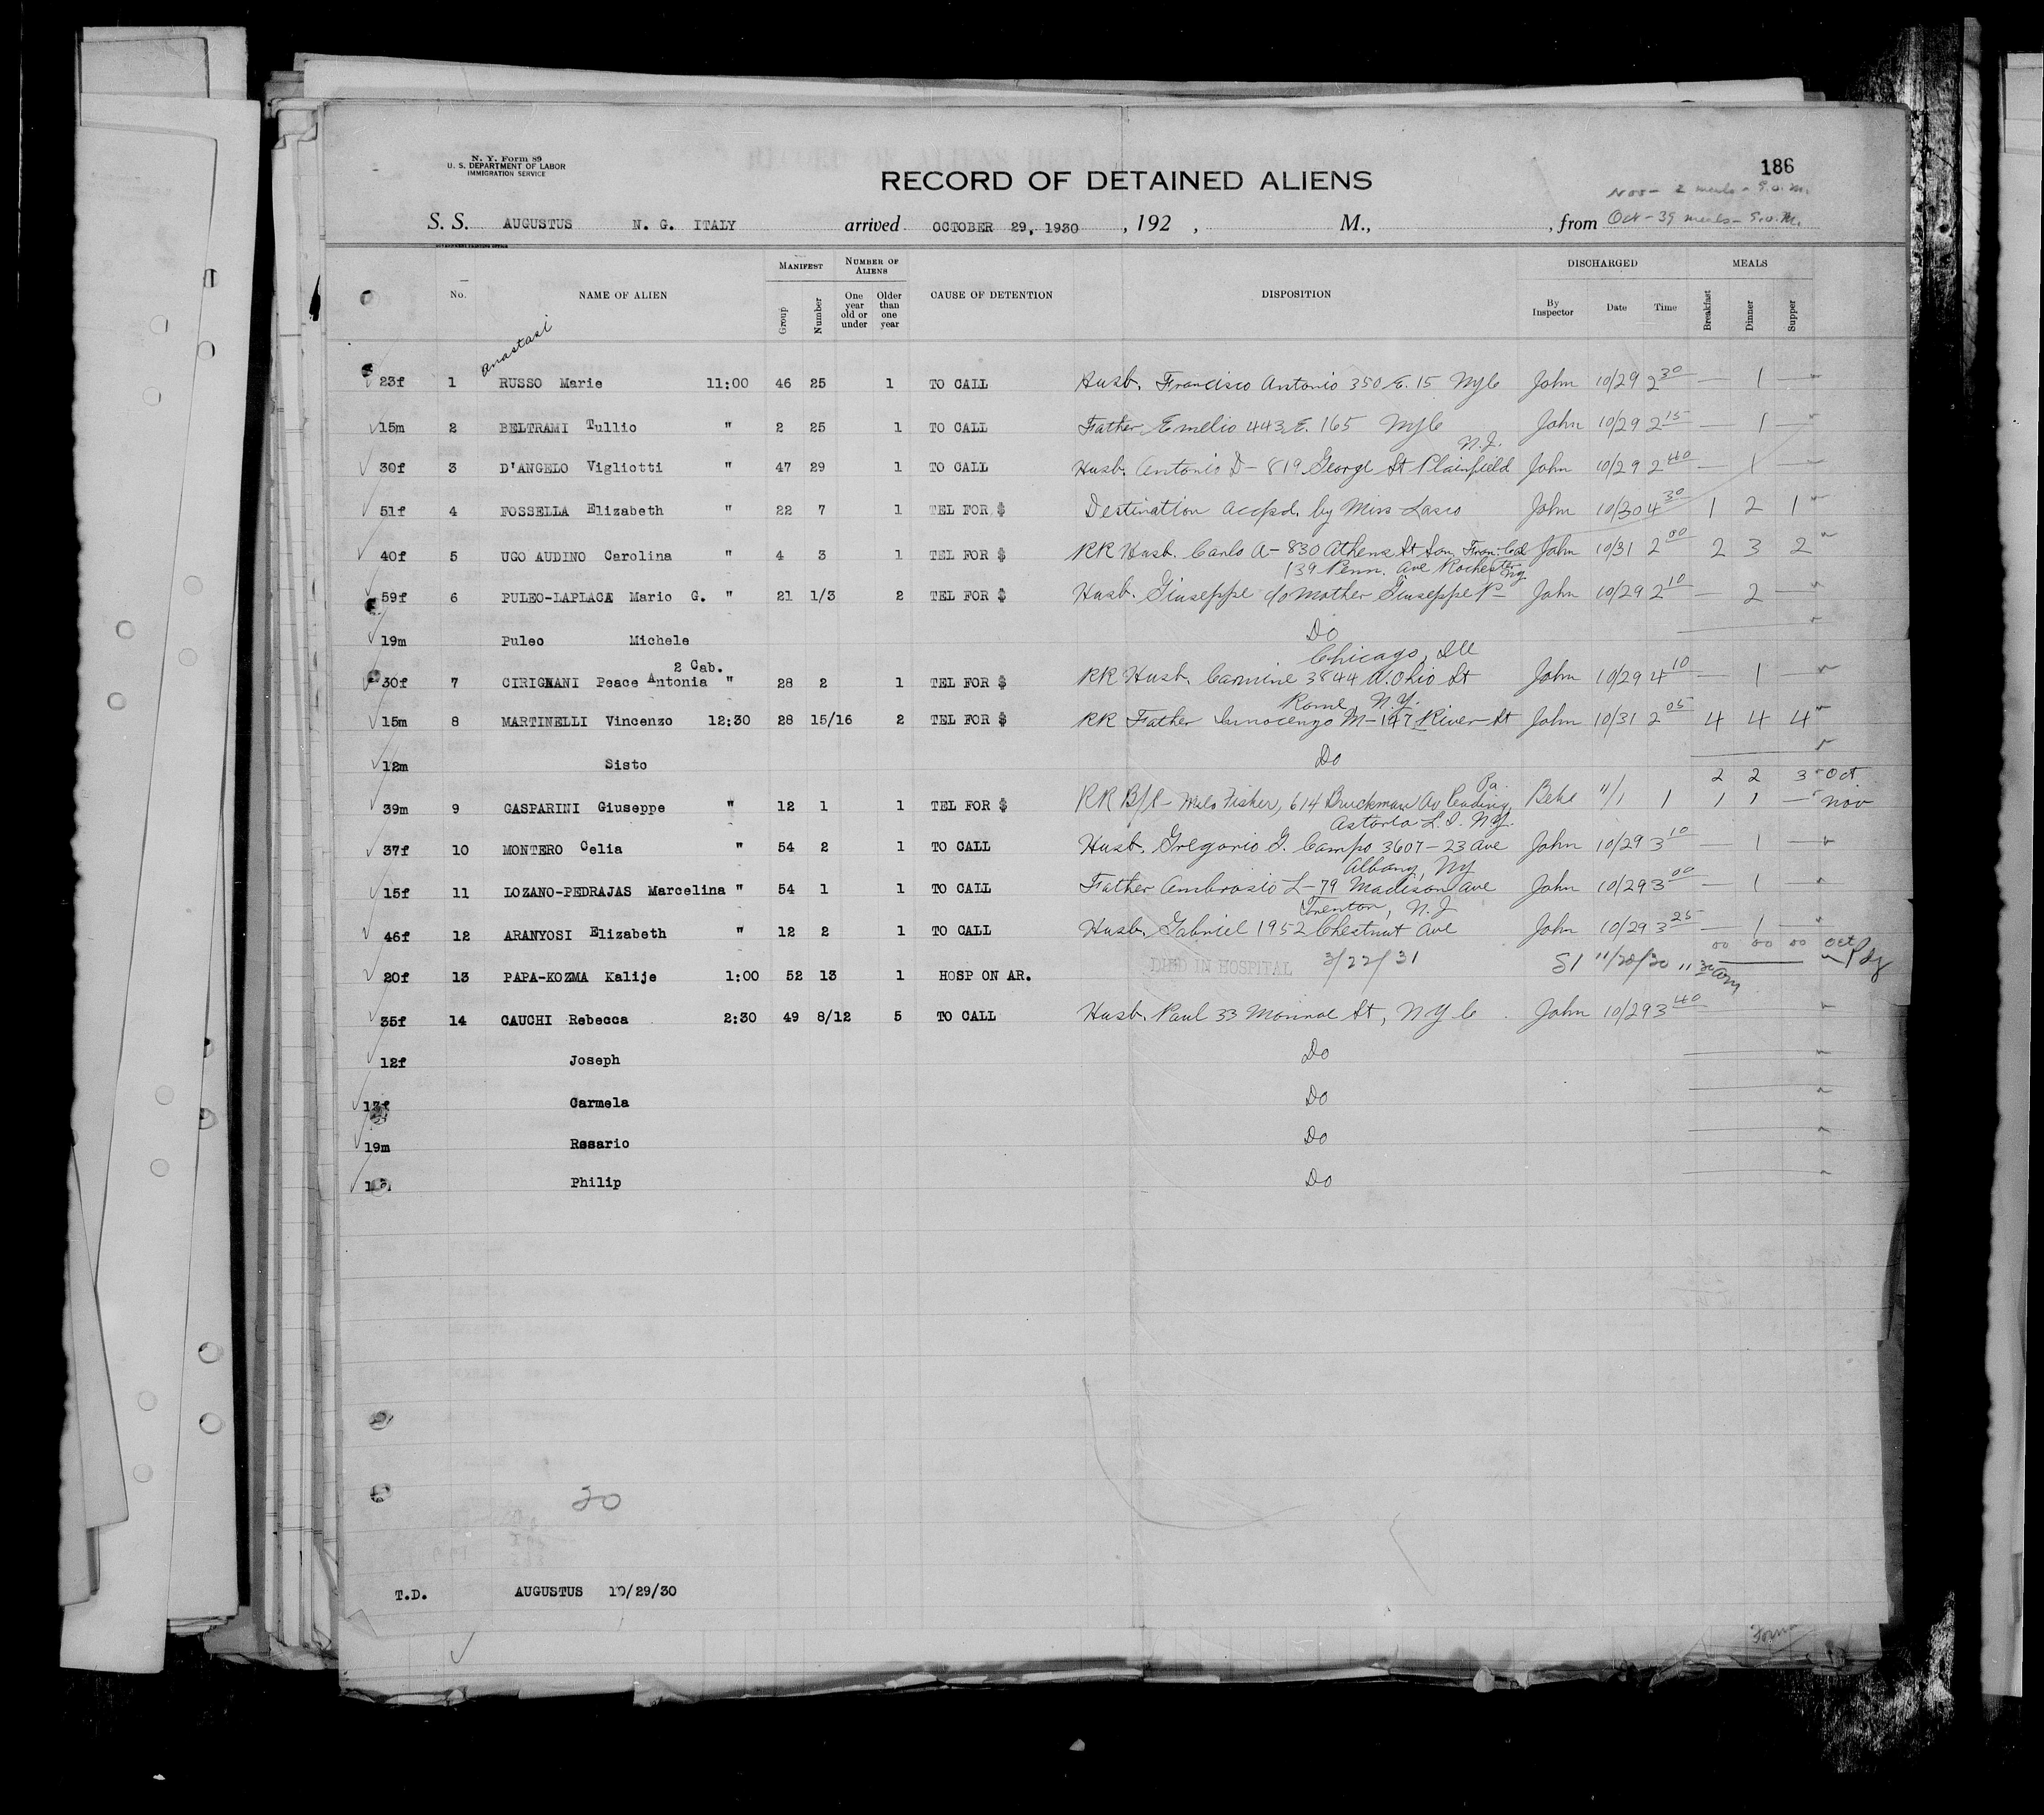 N. Y. Form 89
U. S. DEPARTMENT OF LABOR
IMMIGRATION SERVICE
186
RECORD OF DETAINED ALIENS
Nov - 2 meals - S.O.M.
S. S. AUGUSTUS N. G. ITALY arrived OCTOBER 29, 1930 , 192 , M., , from Oct - 39 meals - S.O.M.
No. NAME OF ALIEN MANIFEST Group Number NUMBER OF ALIENS One year old or under Older than one year CAUSE OF DETENTION DISPOSITION DISCHARGED By Inspector Date Time MEALS Breakfast Dinner Supper
Anastasi
23f 1 RUSSO Marie 11:00 46 25 1 TO CALL Husb. Francisco Antonio 350 E. 15 NYC John 10/29 2 30 — 1 —
15m 2 BELTRAMI Tullio " 2 25 1 TO CALL Father Emelio 443 E. 165 NYC John 10/29 2 15 — 1 —
N.J.
30f 3 D'ANGELO Vigliotti " 47 29 1 TO CALL Husb. Antonio D - 819 George St Plainfield John 10/29 2 40 — 1 —
51f 4 FOSSELLA Elizabeth " 22 7 1 TEL FOR $ Destination accpd. by Miss Lasro John 10/30 4 30 1 2 1
40f 5 UGO AUDINO Carolina " 4 3 1 TEL FOR $ RR Husb. Carlo A - 830 Athens St San Fran. Cal John 10/31 2 00 2 3 2
139 Penn. Ave Rochester NY
59f 6 PULEO-LAPLACA Mario G. " 21 1/3 2 TEL FOR $ Husb. Giuseppe c/o Mother Giuseppe P- John 10/29 2 10 — 2 —
19m Puleo Michele Do
2 Cab. Chicago, Ill
30f 7 CIRIGNANI Peace Antonia " 28 2 1 TEL FOR $ RR Husb. Carmine 3844 W. Ohio St John 10/29 4 10 — 1 —
Rome, N.Y.
15m 8 MARTINELLI Vincenzo 12:30 28 15/16 2 TEL FOR $ RR Father Innocenzo M - 147 River St John 10/31 2 05 4 4 4
12m Sisto Do
Pa. 2 2 3 Oct
39m 9 GASPARINI Giuseppe " 12 1 1 TEL FOR $ RR B/L - Milo Fisher, 614 Bruckman Av Reading, 11/1 1 1 1 — Nov
Astoria L.I. NY.
37f 10 MONTERO Celia " 54 2 1 TO CALL Husb. Gregorio G. Campo 3607 - 23 Ave John 10/29 3 10 — 1 —
Albany, NY
15f 11 LOZANO-PEDRAJAS Marcelina " 54 1 1 TO CALL Father Ambrosio L - 79 Madison Ave John 10/29 3 00 — 1 —
Trenton, N.J
46f 12 ARANYOSI Elizabeth " 12 2 1 TO CALL Husb. Gabriel 1952 Chestnut Ave John 10/29 3 25 — 1 —
00 00 00 Oct
20f 13 PAPA-KOZMA Kalije 1:00 52 13 1 HOSP ON AR. DIED IN HOSPITAL 3/22/31 SI 11/28/30 11 30 am
35f 14 CAUCHI Rebecca 2:30 49 8/12 5 TO CALL Husb. Paul 33 Monroe St, NYC John 10/29 3 40
12f Joseph Do
Carmela Do
19m Rosario Do
Philip Do
20
T.D. AUGUSTUS 10/29/30